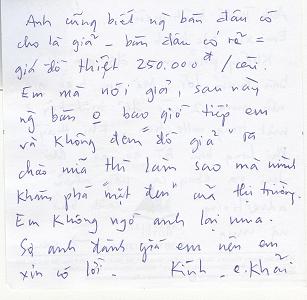 Anh cũng biết ng bán đâu có
cho là giả – bán đâu có rẽ =
giá đồ thiệt 250.000đ/cái.
Em mà nói giả, sau này
ng bán o bao giờ tiếp em
và không đem "đồ giả" ra
chào nữa thì làm sao mà mình
khám phá "mặt đen" của thị trường.
Em không ngờ anh lại mua.
Sợ anh đánh giá em nên em
xin có lời. Kính e. Khải